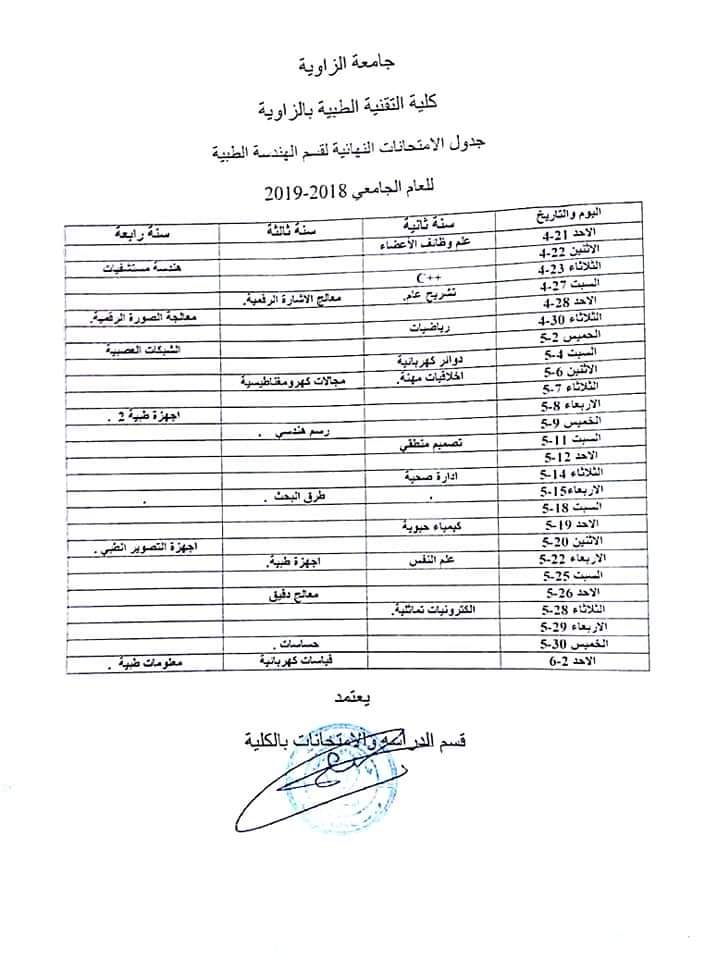 جامعة الزاوية
كلية التقنية الطبية بالزاوية
جدول الامتحانات النهائية لقسم الهندسة الطبية
للعام الجامعي 2018-2019
اليوم والتاريخ سنة ثانية سنة ثالثة سنة رابعة
الاحد 21-4 علم وظائف الأعضاء
الاثنين 22-4
الثلاثاء 23-4 C++ هندسة مستشفيات
السبت 27-4 تشريح عام. معالج الاشارة الرقمية.
الاحد 28-4
الثلاثاء 30-4 رياضيات معالجة الصورة الرقمية.
الخميس 2-5
السبت 4-5 دوائر كهربائية الشبكات العصبية
الاثنين 6-5 اخلاقيات مهنة. مجالات كهرومغناطيسية
الثلاثاء 7-5
الاربعاء 8-5
الخميس 9-5 رسم هندسي . اجهزة طبية 2 .
السبت 11-5 تصميم منطقي
الاحد 12-5
الثلاثاء 14-5 ادارة صحية
الاربعاء15-5 . طرق البحث . .
السبت 18-5
الاحد 19-5 كيمياء حيوية
الاثنين 20-5 اجهزة التصوير الطبي .
الاربعاء 22-5 علم النفس اجهزة طبية.
السبت 25-5
الاحد 26-5 معالج دقيق
الثلاثاء 28-5 الكترونيات تماثلية.
الاربعاء 29-5
الخميس 30-5 حساسات .
الاحد 2-6 قياسات كهربائية معلومات طبية .
يعتمد
قسم الدراسة والامتحانات بالكلية